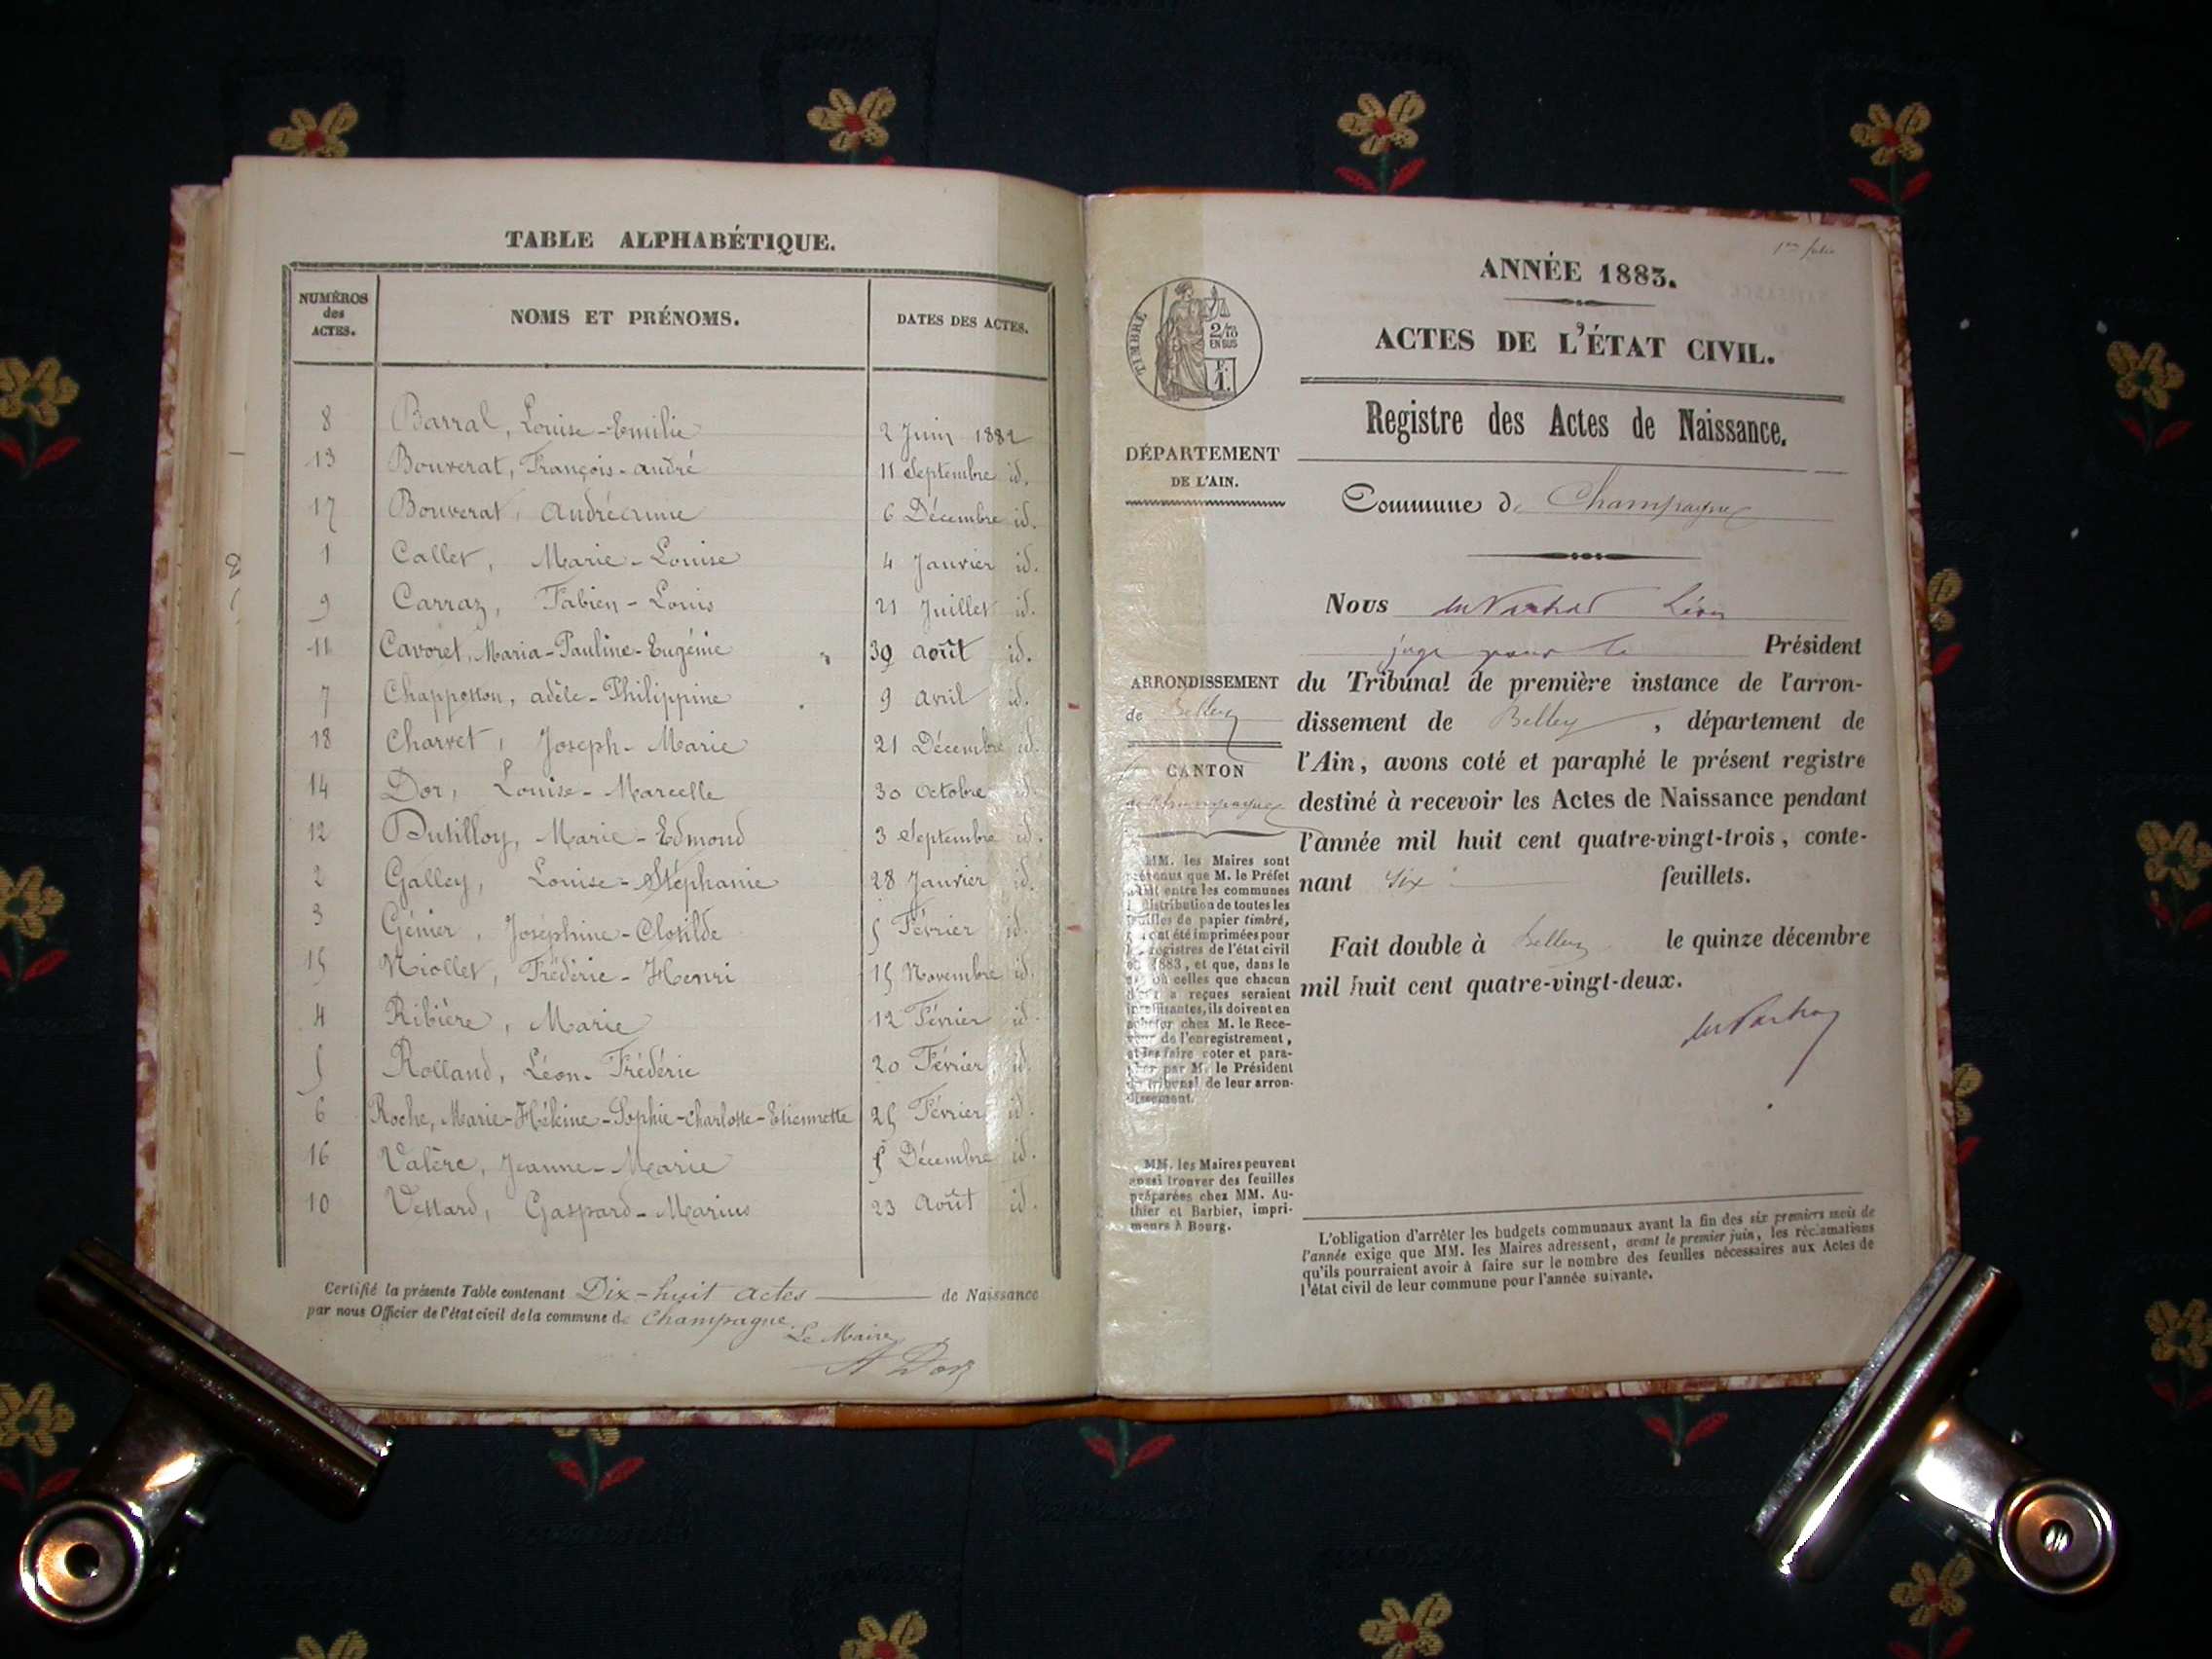 TABLE ALPHABÉTIQUE.
NUMÉROS
des
ACTES.
NOMS ET PRÉNOMS.
DATES DES ACTES.
8 Barral, Louise-Emilie 2 Juin 1882
13 Bouverat, François-André 11 Septembre id.
17 Bouverat, 6 Décembre id.
1 Callet, Marie-Louise 4 Janvier id.
9 Carraz, Fabien-Louis 21 Juillet id.
11 Cavoret, Maria-Pauline-Eugénie 30 Août id.
7 Chapposton, Adèle-Philippine 9 Avril id.
18 Charvet, Joseph-Marie 21 Décembre id.
14 Dor, Louise-Marcelle 30 Octobre id.
12 Dutilloy, Marie-Edmond 3 Septembre id.
2 Galley, Louise-Stéphanie 28 Janvier id.
3 Génier, Joséphine-Clotilde 5 Février id.
15 Niollet, Frédéric-Henri 15 Novembre id.
4 Ribière, Marie 12 Février id.
5 Rolland, Léon-Frédéric 20 Février id.
6 Roche, Marie-Hélène-Sophie-Charlotte-Etiennette 25 Février id.
16 Valère, Jeanne-Marie 5 Décembre id.
10 Vettard, Gaspard-Marius 23 Août id.
Certifié la présente Table contenant Dix-huit actes de Naissance
par nous Officier de l'état civil de la commune de Champagne.
Le Maire
A Dor
1er folio
ANNÉE 1883.
ACTES DE L'ÉTAT CIVIL.
Registre des Actes de Naissance.
Commune de Champagne
Nous Léon
juge pour le Président
du Tribunal de première instance de l'arron-
dissement de Belley, département de
l'Ain, avons coté et paraphé le présent registre
destiné à recevoir les Actes de Naissance pendant
l'année mil huit cent quatre-vingt-trois, conte-
nant Six feuillets.
Fait double à Belley le quinze décembre
mil huit cent quatre-vingt-deux.
L'obligation d'arrêter les budgets communaux avant la fin des six premiers mois de
l'année exige que MM. les Maires adressent, avant le premier juin, les réclamations
qu'ils pourraient avoir à faire sur le nombre des feuilles nécessaires aux Actes de
l'état civil de leur commune pour l'année suivante.
TIMBRE
2/10
EN SUS
F.
1.
DÉPARTEMENT
DE L'AIN.
ARRONDISSEMENT
de Belley
CANTON
de Champagne
MM. les Maires sont
prévenus que M. le Préfet
fait entre les communes
la distribution de toutes les
feuilles de papier timbré,
qui ont été imprimées pour
les registres de l'état civil
de 1883, et que, dans le
cas où celles que chacun
d'eux a reçues seraient
insuffisantes, ils doivent en
acheter chez M. le Rece-
veur de l'enregistrement,
et les faire coter et para-
pher par M. le Président
du tribunal de leur arron-
dissement.
MM. les Maires peuvent
aussi trouver des feuilles
préparées chez MM. Au-
thier et Barbier, impri-
meurs à Bourg.